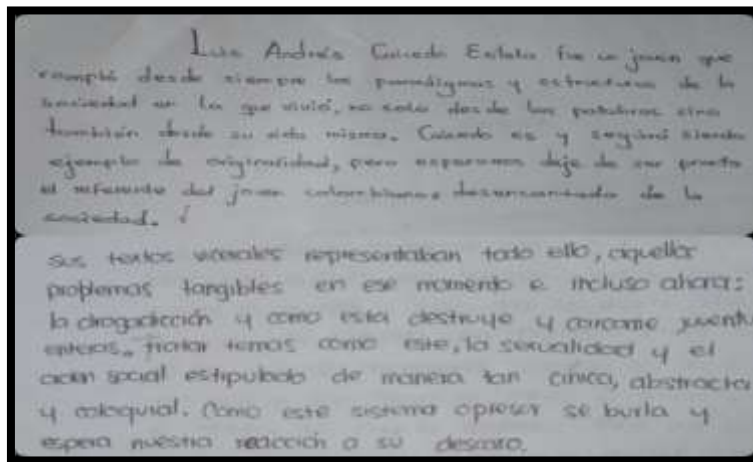 Luis Andrés Caicedo Estela fue un joven que
rompió desde siempre los paradigmas y estructuras de la
sociedad en la que vivió, no solo desde las palabras sino
también desde su vida misma. Caicedo es y seguirá siendo
ejemplo de originalidad, pero esperamos deje de ser pronto
el referente del joven colombiano desencantado de la
sociedad.
sus textos viscerales representaban todo ello, aquellos
problemas tangibles en ese momento e incluso ahora:
la drogadicción y como esta destruye y carcome juventu
enteras. Tratar temas como este, la sexualidad y el
orden social estipulado de manera tan cínica, abstracta
y coloquial. Como este sistema opresor se burla y
espera nuestra reacción a su descaro.